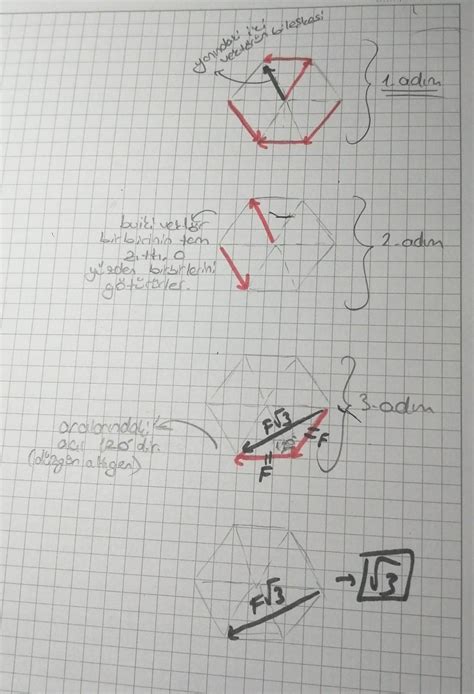 yanındaki iki
vektörün bileşkesi
1. adım
bu iki vektör
birbirinin tam
zıttı. O
yüzden birbirlerini
götürürler.
2. adım
3. adım
F√3
F
120
F
aralarındaki
açı 120° dir.
(düzgün altıgen)
F√3
→ √3